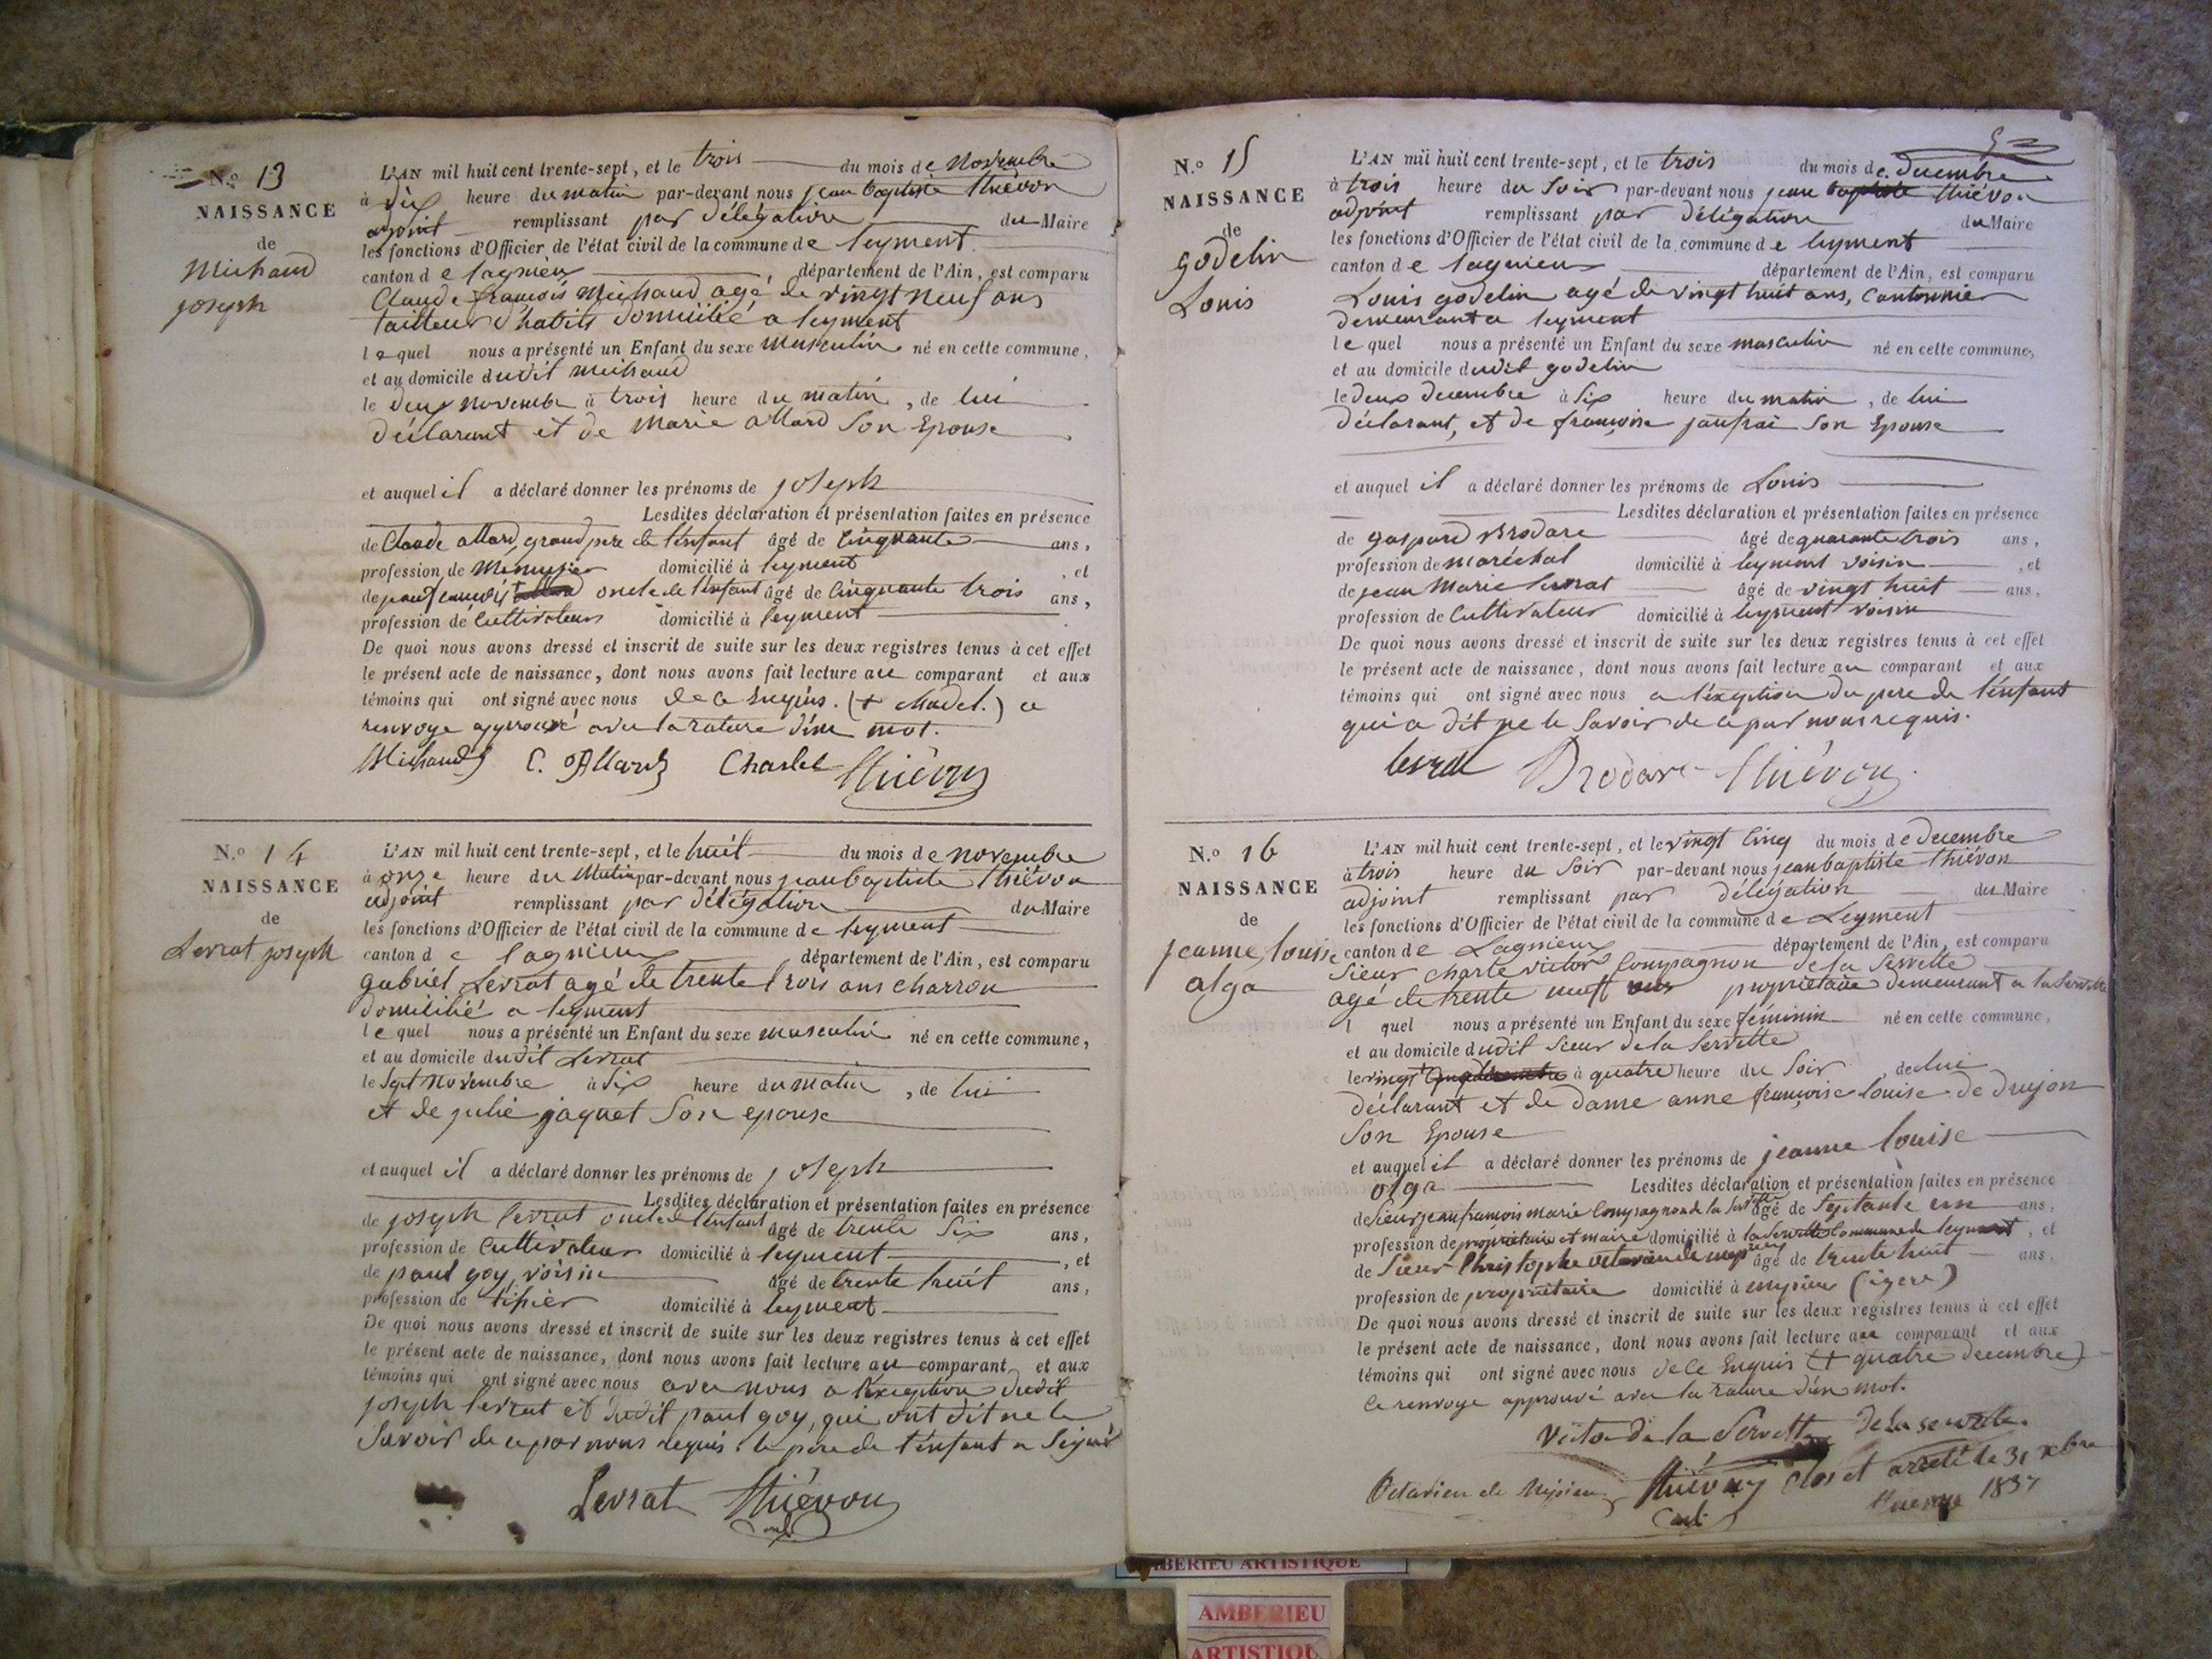 N.º 13
NAISSANCE
de
Michaud
joseph
L'AN mil huit cent trente-sept, et le trois du mois de Novembre
à dix heure du matin par-devant nous jean baptiste thiévon
adjoint remplissant par délégation du Maire
les fonctions d'Officier de l'état civil de la commune de leyment
canton de lagnieu département de l'Ain, est comparu
Claude françois Michaud agé de vingt neuf ans
tailleur d'habits domicilié a leyment
lequel nous a présenté un Enfant du sexe Masculin né en cette commune,
et au domicile dudit michaud
le deux novembre à trois heure du matin, de lui
déclarant et de Marie allard Son Epouse
et auquel il a déclaré donner les prénoms de joseph
Lesdites déclaration et présentation faites en présence
de Claude allard, grand pere de l'énfant âgé de Cinquante ans,
profession de Menuisier domicilié à leyment, et
de oncle de l'énfant âgé de Cinquante trois ans,
profession de Cultivateur domicilié à leyment
De quoi nous avons dressé et inscrit de suite sur les deux registres tenus à cet effet
le présent acte de naissance, dont nous avons fait lecture au comparant et aux
témoins qui ont signé avec nous de ce Enquis. (+ ) ce
renvoye approuvé avec la rature d'un mot.
Michaud C. Allard Charlet thiévon
N.º 14
NAISSANCE
de
Levrat joseph
L'AN mil huit cent trente-sept, et le huit du mois de novembre
à onze heure du Matin par-devant nous jean baptiste thiévon
adjoint remplissant par délégation du Maire
les fonctions d'Officier de l'état civil de la commune de leyment
canton de lagnieu département de l'Ain, est comparu
gabriel Levrat agé de trente trois ans charron
domicilié a leyment
lequel nous a présenté un Enfant du sexe masculin né en cette commune,
et au domicile dudit Levrat
le Sept novembre à Six heure du matin, de lui
et de julie jaquet Son epouse
et auquel il a déclaré donner les prénoms de joseph
Lesdites déclaration et présentation faites en présence
de joseph levrat oncle de l'énfant âgé de trente Six ans,
profession de Cultivateur domicilié à leyment, et
de paul goy, voisin âgé de trente huit ans,
profession de tissier domicilié à leyment
De quoi nous avons dressé et inscrit de suite sur les deux registres tenus à cet effet
le présent acte de naissance, dont nous avons fait lecture au comparant et aux
témoins qui ont signé avec nous avec nous a l'éxception dudit
joseph levrat et dudit paul goy, qui ont dit ne le
Savoir de ce par nous requis. le pére de l'énfant a Signé
Levrat thiévon
adj.
5
N.º 15
NAISSANCE
de
godelin
Louis
L'AN mil huit cent trente-sept, et le trois du mois de Decembre
à trois heure du Soir par-devant nous jean baptiste thiévon
adjoint remplissant par délégation du Maire
les fonctions d'Officier de l'état civil de la commune de leyment
canton de lagnieu département de l'Ain, est comparu
Louis godelin agé de vingt huit ans, Cantonnier
demeurant a leyment
lequel nous a présenté un Enfant du sexe masculin né en cette commune,
et au domicile dudit godelin
le deux decembre à Six heure du matin, de lui
déclarant, et de françoise janfrai Son Epouse
et auquel il a déclaré donner les prénoms de Louis
Lesdites déclaration et présentation faites en présence
de gaspard Brodare âgé de quarante trois ans,
profession de maréchal domicilié à leyment voisin, et
de jean Marie levrat âgé de vingt huit ans,
profession de Cultivateur domicilié à leyment voisin
De quoi nous avons dressé et inscrit de suite sur les deux registres tenus à cet effet
le présent acte de naissance, dont nous avons fait lecture au comparant et aux
témoins qui ont signé avec nous a l'éxeption du pere de l'énfant
qui a dit ne le Savoir de ce par nous requis.
levrat Brodare thiévon
N.º 16
NAISSANCE
de
jeanne louise
olga
L'AN mil huit cent trente-sept, et le vingt Cinq du mois de decembre
à trois heure du Soir par-devant nous jean baptiste thiévon
adjoint remplissant par délégation du Maire
les fonctions d'Officier de l'état civil de la commune de Leyment
canton de Lagnieu département de l'Ain, est comparu
Sieur charle victor Compagnon de la Servette
agé de trente neuf ans propriétaire demeurant a la Servette
l quel nous a présenté un Enfant du sexe féminin né en cette commune,
et au domicile dudit Sieur de la Servette
le vingt à quatre heure du Soir, de lui
déclarant et de dame anne françoise louise de Drujon
Son Epouse
et auquel il a déclaré donner les prénoms de jeanne louise
olga Lesdites déclaration et présentation faites en présence
de Sieur jean françois marie Compagnon de la Servette âgé de Septante un ans,
profession de propriétaire et maire domicilié à la Servette Commune de leyment, et
de Sieur Christophe octavien de mepieu âgé de trente huit ans.
profession de propriétaire domicilié à mepieu (izere)
De quoi nous avons dressé et inscrit de suite sur les deux registres tenus à cet effet
le présent acte de naissance, dont nous avons fait lecture au comparant et aux
témoins qui ont signé avec nous de ce Enquis (+ quatre decembre)
Ce renvoye approuvé avec la rature d'un mot.
Victor De la Servette De la Servette
Octavien de Mepieu thiévon Clos et arreté le 31 xbre
adj. thiévon 1837
AMBERIEU ARTISTIQUE
AMBERIEU
ARTISTIQU